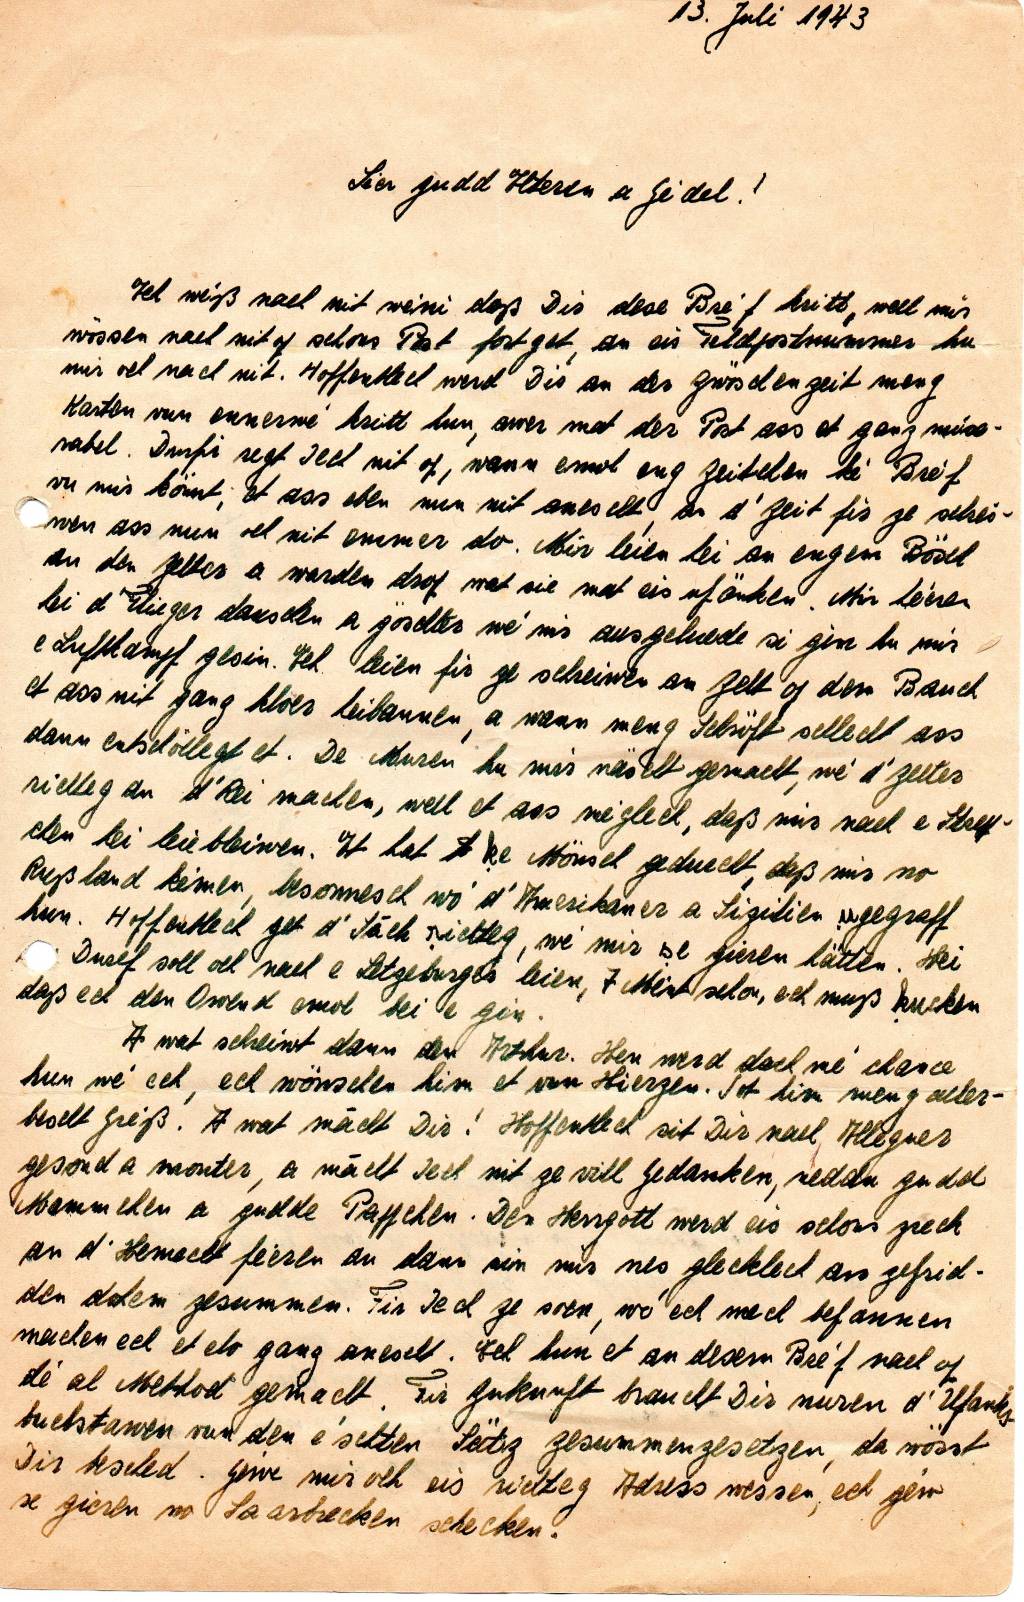 13. Juli 1943
Léer gudd Elteren a Géidel!
Ech weiß nach nit wéini daß Dir dese Bréf kritt, well mir
wössen nach nit of schons Post fort get, an eis Feldpostnummer hu
mir och nach nit. Hoffentlech werd Dir an der zwöschenzeit meng
Karten vun ennerwé kritt hun, awer mat der Post ass et ganz misé-
rabel. Durfir regt Iech nit of, wann emol eng Zeitchen ké Bréf
vu mir könnt, et ass eben nun nit anescht, an d'Zeit fir ze schrei-
wen ass nun och nit emmer do. Mir leien hei an engem Bösch
an den Zelter a warden drof wat sie mat eis ufänken. Mir héeren
hei d'Flieger dauschen a göschter wé mir ausgeluede si gin hu mir
e Luftkampf gesin. Ech leien fir ze schreiwen am Zelt of dem Bauch
et ass nit ganz kloer heibannen, a wann meng Schröft schlecht ass
dann entschöllegt et. De Muren hu mir näscht gemacht, wé d'Zelter
richteg an d'Rei machen, well et ass méglech, daß mir nach e Stréf-
chen hei leie bleiwen. Et hat ke Mönsch geduecht, daß mir no
Rußland kéimen, besonnesch wo d'Amerikaner a Sizilien ugegraff
hun. Hoffentlech get d'Sách richteg, wé mir se gieren hätten. Hei
Duerf soll och nach e Letzeburger leien, 7 Méint schon, ech muß kucken
daß ech den Owend emol bei e gin.
A wat scheint dann den Arthur. Hen werd dach mé chance
hun wé ech, ech wönschen him et vun Hierzen. Sot him meng aller-
bescht Gréiß. A wat mácht Dir! Hoffentlech sit Dir nach Alleguer
gesond a monter, a mácht Iech nit ze vill Gedanken, neddu gudd
Mammchen a gudde Pappchen. Den Herrgott werd eis schons zreck
an d'Hemecht féieren an dann sin mir nes glecklech an gefrid-
den doheem zesummen. Fir Iech ze soen, wo ech mech befannen
machen ech et elo ganz anescht. Ech hun et an desem Bréf nach of
dé al Method gemacht. Fir Zukunft braucht Dir nuren d'Ufanks-
buchstawen vun den éischten Sätz zesummenzesetzen, da wösst
Dir bescheed. Gewe mir och eis richteg Adress wessen, ech géw
se gieren no Saarbrecken schecken.